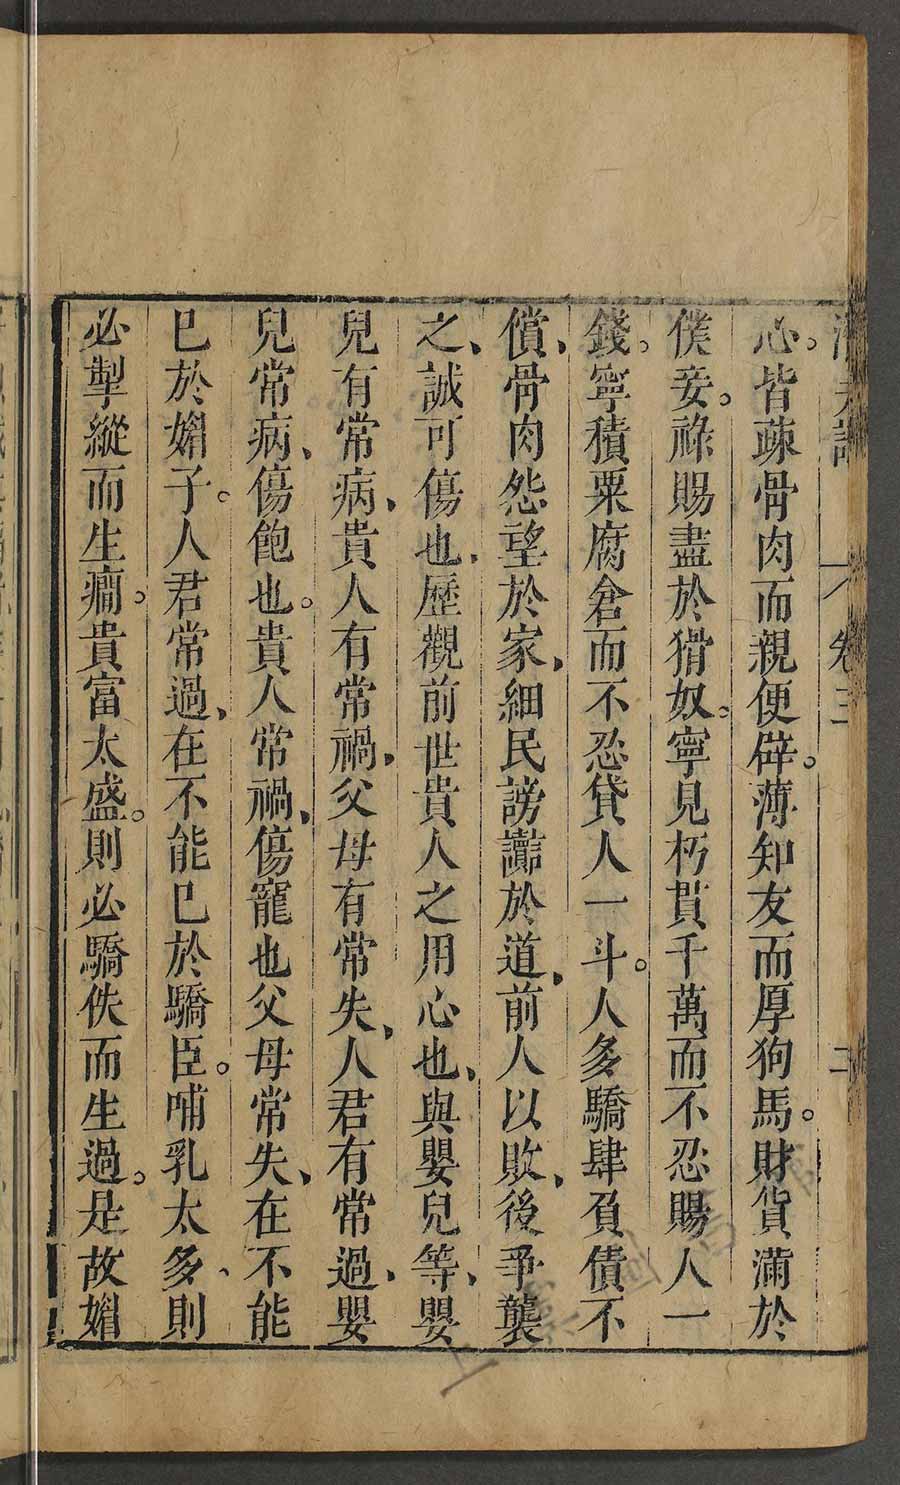 潛夫論 卷三 二
心。皆疎骨肉而親便辟。薄知友而厚狗馬。財貨滿於
僕妾。祿賜盡於猾奴。寧見朽貫千萬而不忍賜人一
錢。寧積粟腐倉而不忍貸人一斗。人多驕肆負債不
償、骨肉怨望於家、細民謗讟於道、前人以敗、後爭襲
之、誠可傷也、歷觀前世貴人之用心也、與嬰兒等、嬰
兒有常病、貴人有常禍、父母有常失、人君有常過、嬰
兒常病、傷飽也。貴人常禍、傷寵也父母常失、在不能
已於媚子。人君常過、在不能已於驕臣。哺乳太多、則
必掣縱而生癇。貴富太盛。則必驕佚而生過。是故媚